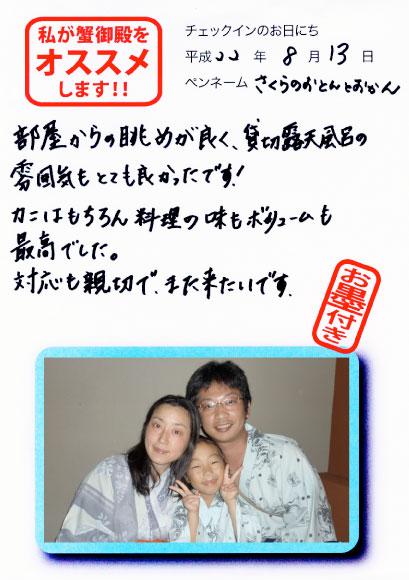 私が蟹御殿を
オススメ
します!!
チェックインのお日にち
平成22年8月13日
ペンネーム さくらのおとんとおかん
部屋からの眺めが良く、貸切露天風呂の
雰囲気もとても良かったです!
カニはもちろん料理の味もボリュームも
最高でした。
対応も親切で、また来たいです。
お墨付き